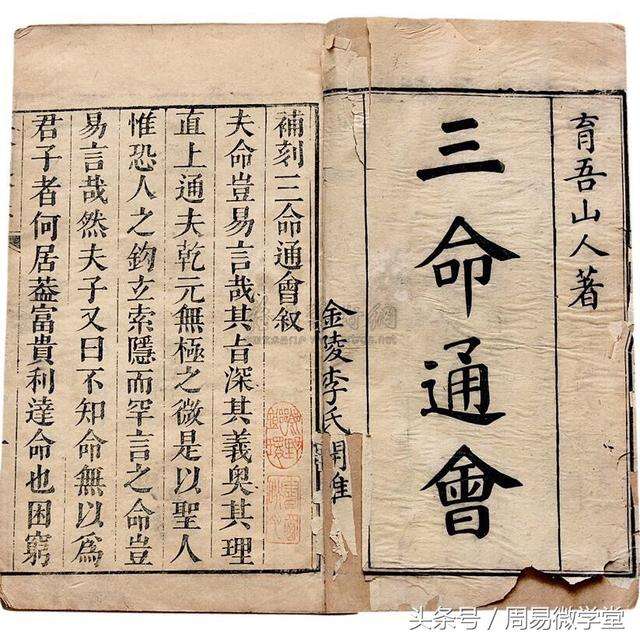 育吾山人著
三命通會
金陵李氏
補刻三命通會叙
夫命豈易言哉其旨深其義奥其理
直上通夫乾元無極之微是以聖人
惟恐人之鈎玄索隱而罕言之命豈
易言哉然夫子又曰不知命無以為
君子者何居葢富貴利達命也困窮
头条号 / 周易微学堂